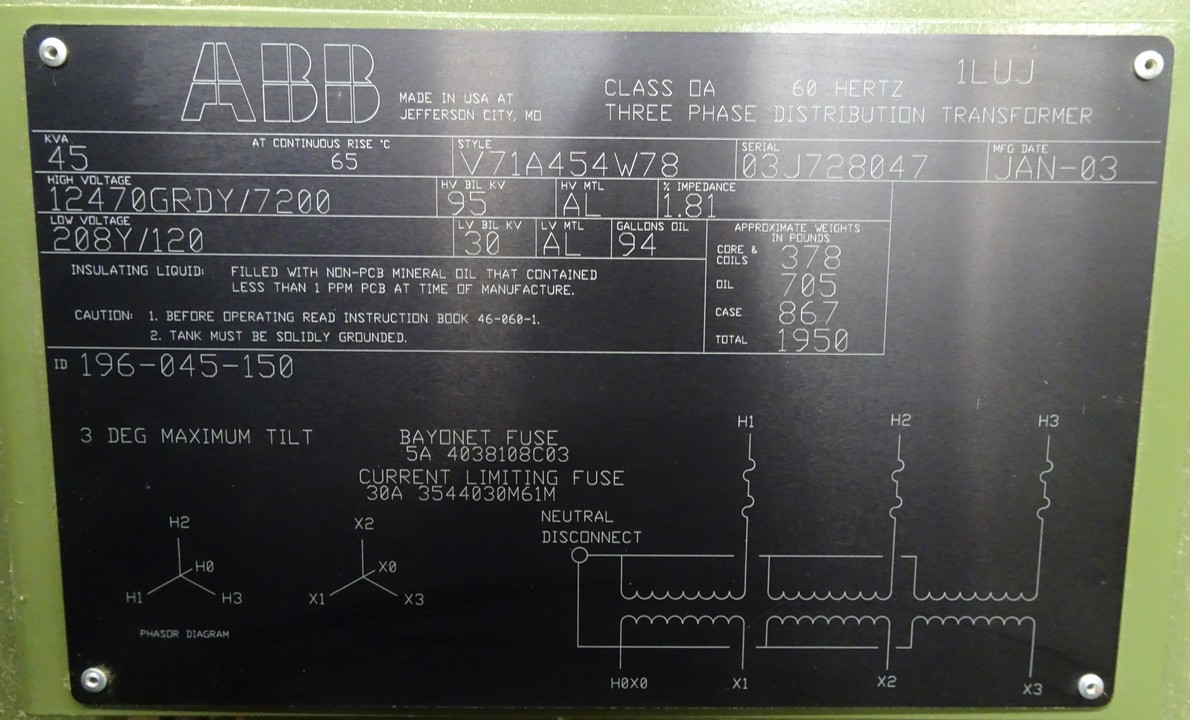 ABB
MADE IN USA AT
JEFFERSON CITY, MO
CLASS OA 60 HERTZ 1LUJ
THREE PHASE DISTRIBUTION TRANSFORMER
KVA
45
AT CONTINUOUS RISE °C
65
STYLE
V71A454W78
SERIAL
03J728047
MFG DATE
JAN-03
HIGH VOLTAGE
12470GRDY/7200
HV BIL KV
95
HV MTL
AL
% IMPEDANCE
1.81
LOW VOLTAGE
208Y/120
LV BIL KV
30
LV MTL
AL
GALLONS OIL
94
APPROXIMATE WEIGHTS
IN POUNDS
CORE &
COILS 378
OIL 705
CASE 867
TOTAL 1950
INSULATING LIQUID: FILLED WITH NON-PCB MINERAL OIL THAT CONTAINED
LESS THAN 1 PPM PCB AT TIME OF MANUFACTURE.
CAUTION: 1. BEFORE OPERATING READ INSTRUCTION BOOK 46-060-1.
2. TANK MUST BE SOLIDLY GROUNDED.
ID 196-045-150
3 DEG MAXIMUM TILT
BAYONET FUSE
5A 4038108C03
CURRENT LIMITING FUSE
30A 3544030M61M
NEUTRAL
DISCONNECT
H1 H2 H3
H2
H0
H1 H3
X2
X0
X1 X3
PHASOR DIAGRAM
H0X0 X1 X2 X3